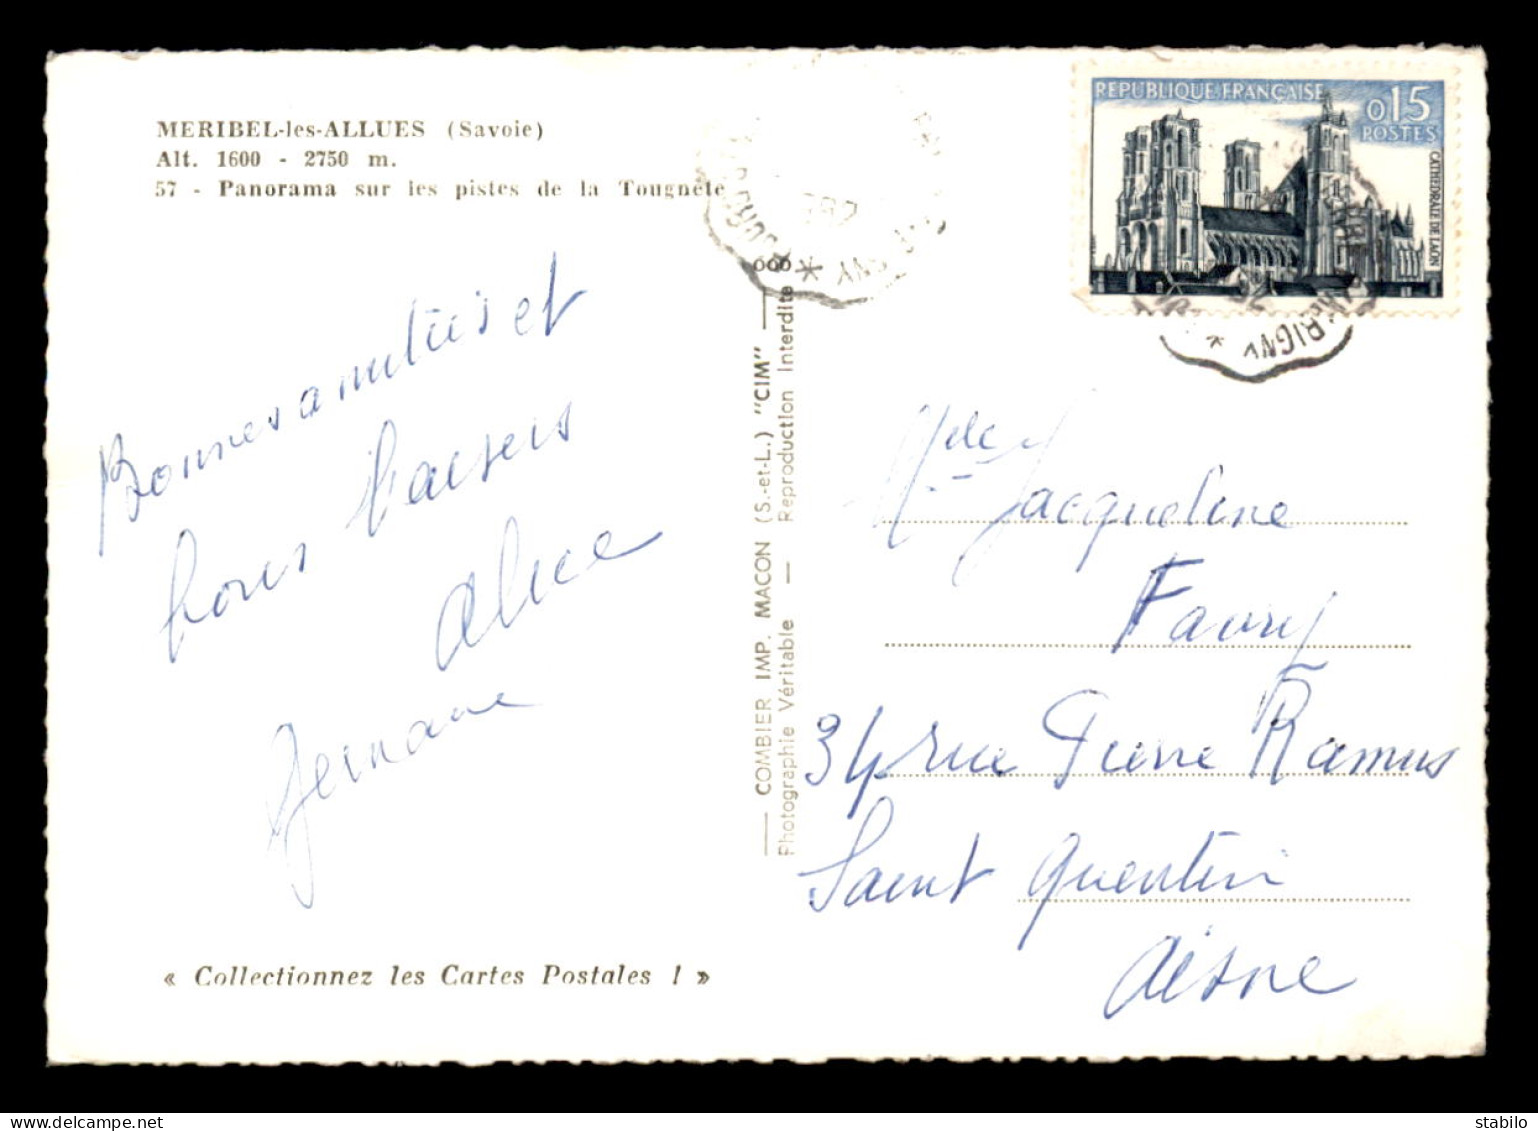 MERIBEL-les-ALLUES (Savoie)
Alt. 1600 - 2750 m.
57 - Panorama sur les pistes de la Tougnète
Bonnes amitiés et
bons baisers
Alice
Germaine
« Collectionnez les Cartes Postales ! »
COMBIER IMP. MACON (S.-et-L.) "CIM"
Photographie Véritable — Reproduction Interdite
REPUBLIQUE FRANÇAISE
0,15
POSTES
CATHEDRALE DE LAON
Melle Jacqueline
Favry
34 rue Pierre Ramus
Saint Quentin
Aisne
stabilo